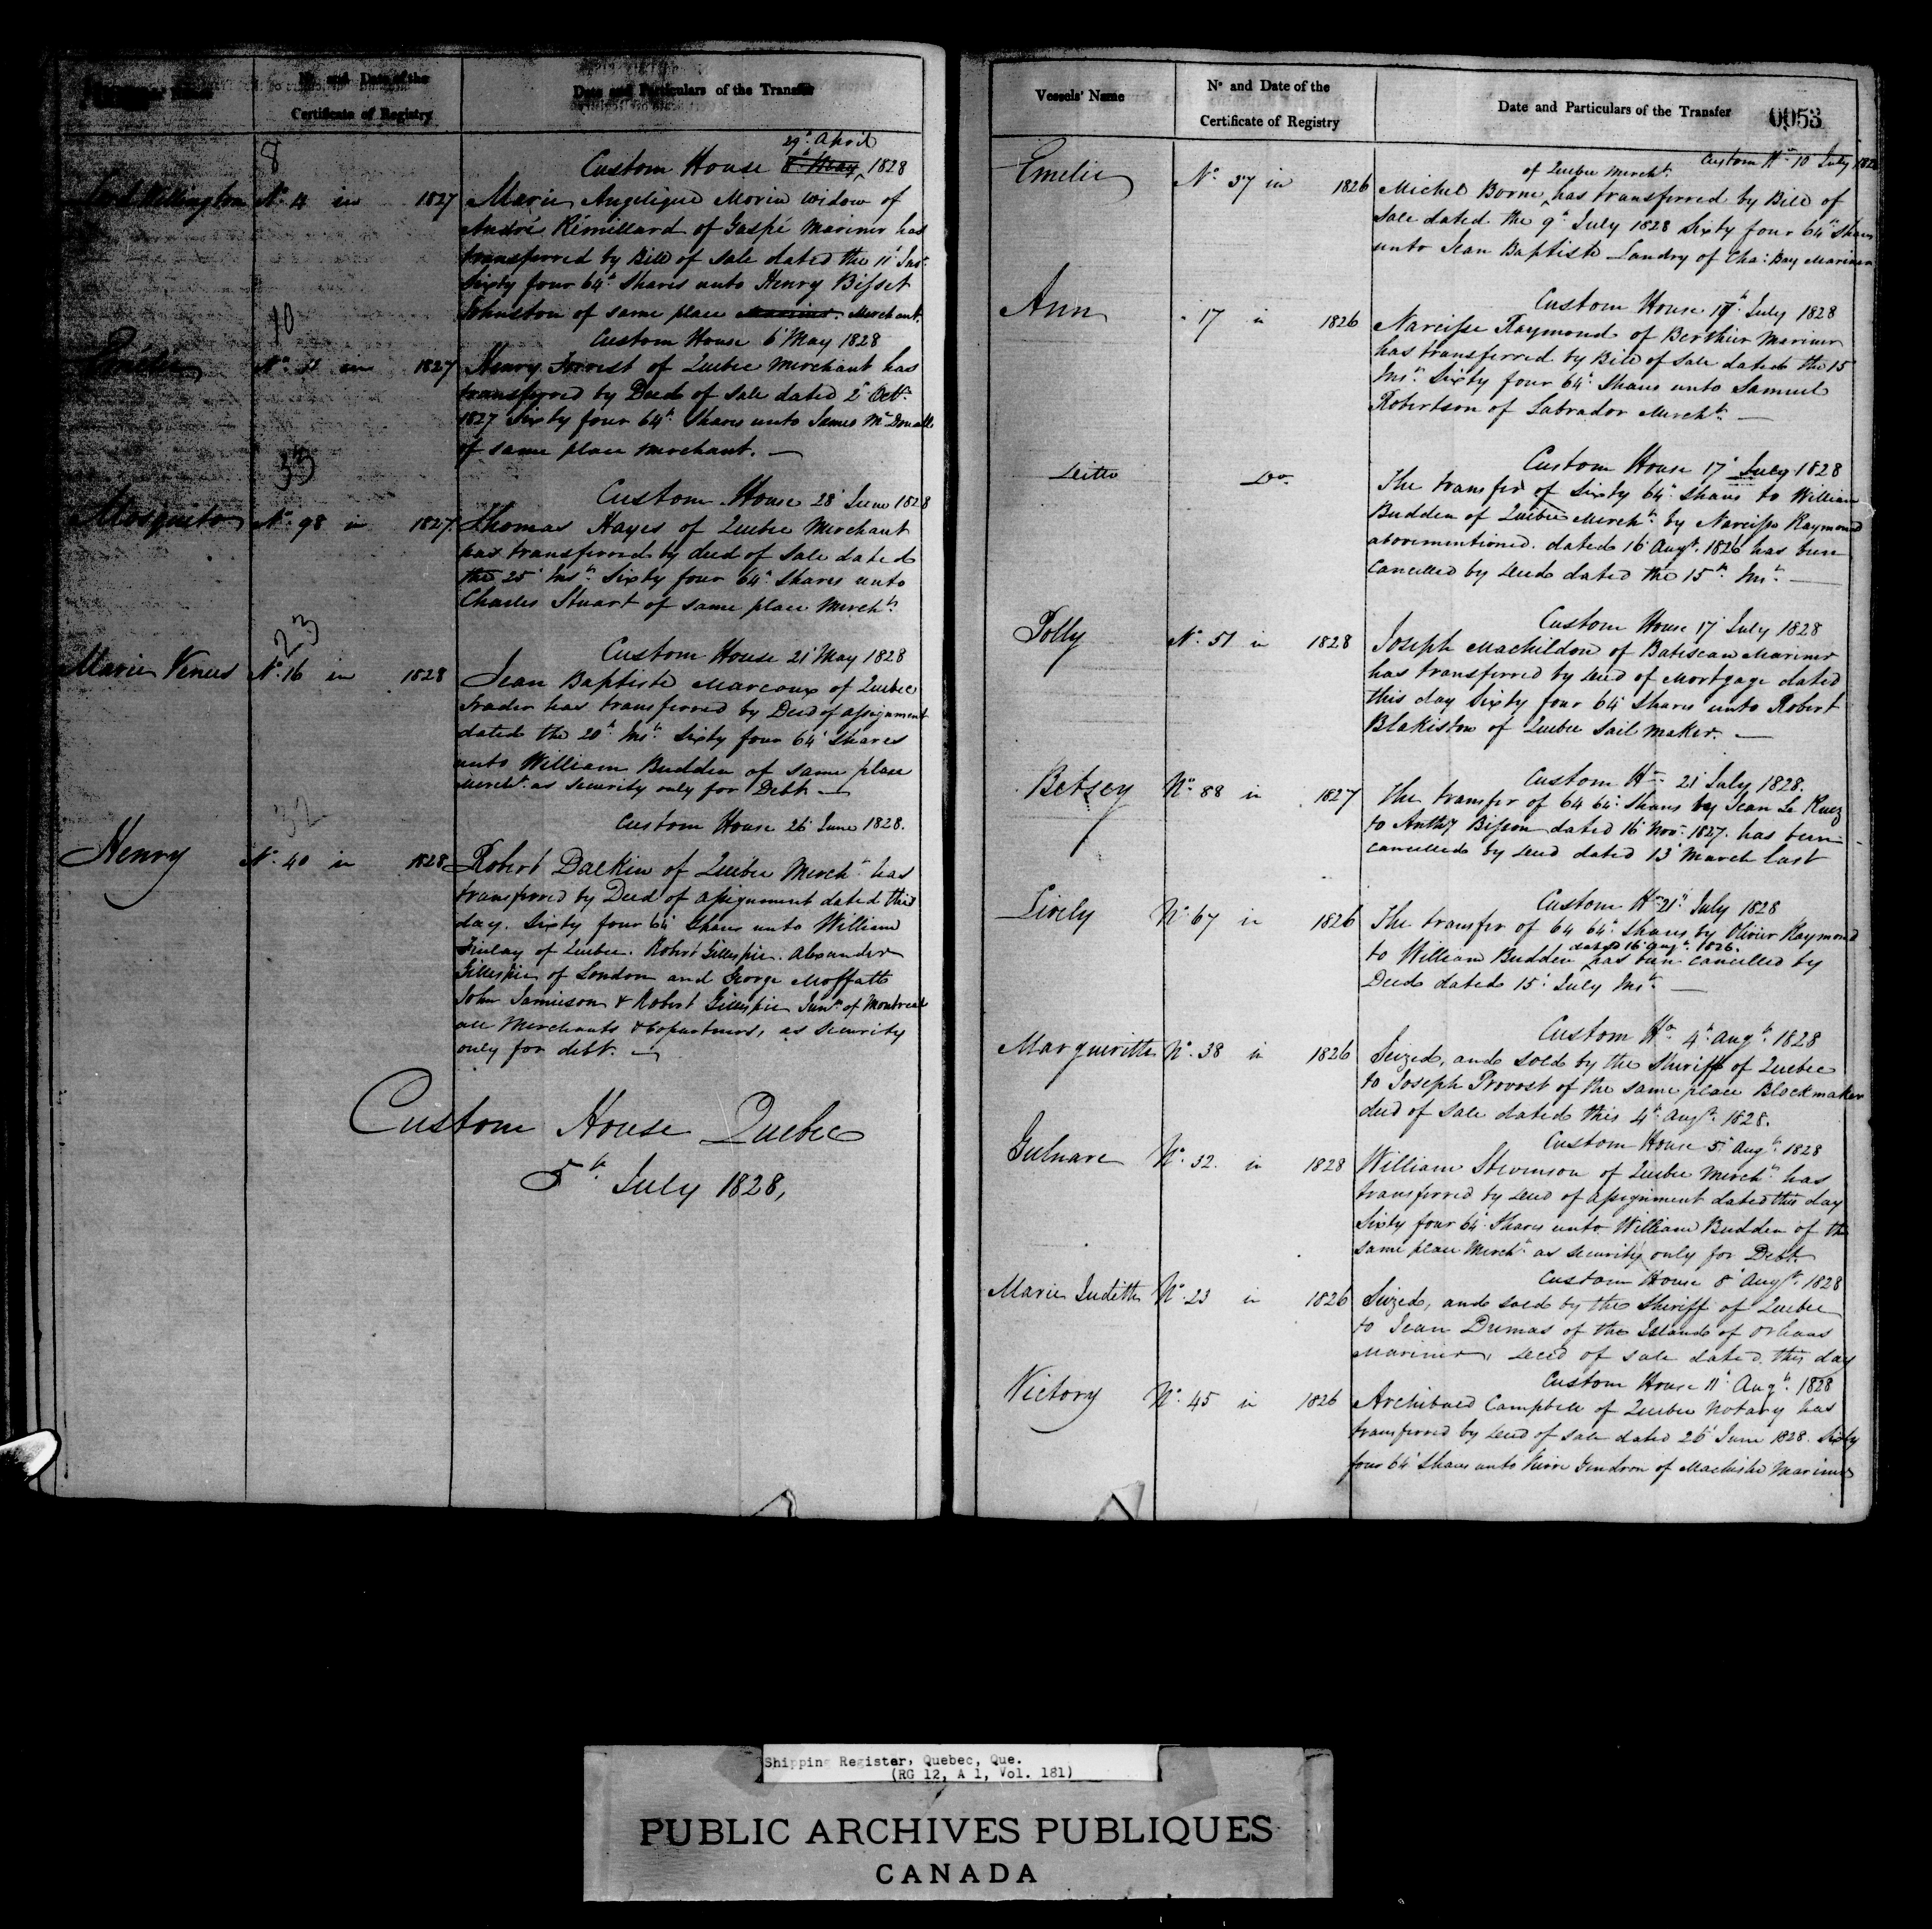 No and Date of the
Certificate of Registry
Date and Particulars of the Transfer
8
29th April
Custom House 6th May 1828
Lord Wellington No. 4 in 1827 Marie Angelique Morin widow of
André Rémillard of Gaspé Mariner has
transferred by Bill of Sale dated the 11th Inst.
Sixty four 64th Shares unto Henry Bisset
Johnston of same place Mariner. Merchant.
10
Custom House 6th May 1828
Emélie No. 51 in 1827 Henry Forrest of Quebec Merchant has
transferred by Deed of Sale dated 2d Octr.
1827 Sixty four 64th Shares unto James McDonall
of same place merchant.
35
Custom House 28th June 1828
Mosquito No. 98 in 1827 Thomas Hayes of Quebec Merchant
has transferred by deed of Sale dated
the 25th Inst. Sixty four 64th Shares unto
Charles Stuart of same place Mercht.
23
Custom House 21st May 1828
Marie Venus No. 16 in 1828 Jean Baptiste Marcoux of Quebec
Trader has transferred by Deed of assignment
dated the 20th Inst. Sixty four 64th Shares
unto William Budden of same place
Mercht. as Security only for Debt
32
Custom House 26th June 1828.
Henry No. 40 in 1828 Robert Daekin of Quebec Mercht. has
transferred by Deed of assignment dated this
day. Sixty four 64th Shares unto William
Finlay of Quebec. Robert Gillespie. Alexander
Gillespie of London and George Moffatt
John Jamieson & Robert Gillespie Junr. of Montreal
all Merchants & Copartners, as Security
only for debt.
Custom House Quebec
5th July 1828,
Vessels' Name
No and Date of the
Certificate of Registry
Date and Particulars of the Transfer
0053
Custom Ho. 10th July 1828
of Quebec Mercht.
Emelie No. 37 in 1826 Michel Borne has transferred by Bill of
Sale dated the 9th July 1828 Sixty four 64th Shares
unto Jean Baptiste Landry of Cha: Bay Mariner
Custom House 17th July 1828
Ann " 17 in 1826 Narcisse Raymond of Berthier Mariner
has transferred by Bill of Sale dated the 15
Inst. Sixty four 64th Shares unto Samuel
Robertson of Labrador Mercht.
Custom House 17th July 1828
Ditto Do. The transfer of Sixty 64th Shares to William
Budden of Quebec Mercht. by Narcisse Raymond
abovementioned. dated 16th Augt. 1826 has been
Cancelled by deed dated the 15th Inst.
Custom House 17th July 1828
Polly No. 51 in 1828 Joseph Machildon of Batiscan Mariner
has transferred by deed of Mortgage dated
this day Sixty four 64th Shares unto Robert
Blakiston of Quebec Sail Maker.
Custom Ho. 21st July 1828.
Betsey No. 88 in 1827 The transfer of 64 64th Shares by Jean Le Ruez
to Anthy Bisson dated 16th Nov. 1827. has been
cancelled by deed dated 13th March last
Custom Ho. 21st July 1828
Lively No. 67 in 1826 The transfer of 64 64th Shares by Olivier Raymond
dated 16th Augt. 1826.
to William Budden has been cancelled by
Deed dated 15th July Inst.
Custom Ho. 4th Augt. 1828
Margueritte No. 38 in 1826 Seized, and sold by the Sheriff of Quebec
to Joseph Provost of the same place Blockmaker
deed of Sale dated this 4th Augt. 1828.
Custom House 5th Augt. 1828
Gulnare No. 32. in 1828 William Stevenson of Quebec Mercht. has
transferred by deed of assignment dated this day
Sixty four 64th Shares unto William Budden of the
same place Mercht. as security only for Debt.
Custom House 8th Augt. 1828
Marie Judith No. 23 in 1826 Seized, and sold by the Sheriff of Quebec
to Jean Dumas of the Island of Orleans
Mariner, deed of sale dated this day
Custom House 11th Augt. 1828
Victory No. 45 in 1826 Archibald Campbell of Quebec Notary has
transferred by deed of Sale dated 26th June 1828. Sixty
four 64th Shares unto Pierre Gendron of Machiche Mariner
Shipping Register, Quebec, Que.
(RG 12, A 1, Vol. 181)
PUBLIC ARCHIVES PUBLIQUES
CANADA